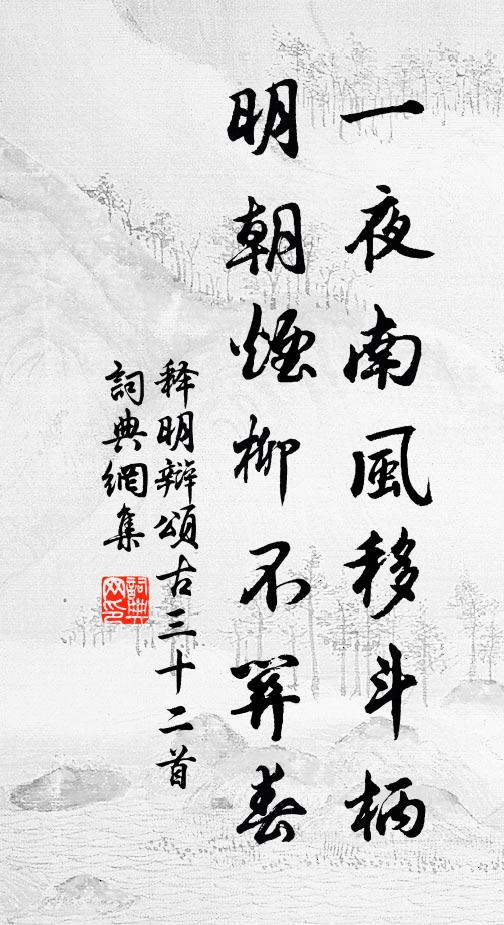 一夜南風移斗柄
明朝煙柳不關春
释明辯頌古三十二首
詞典網集
詞典网印